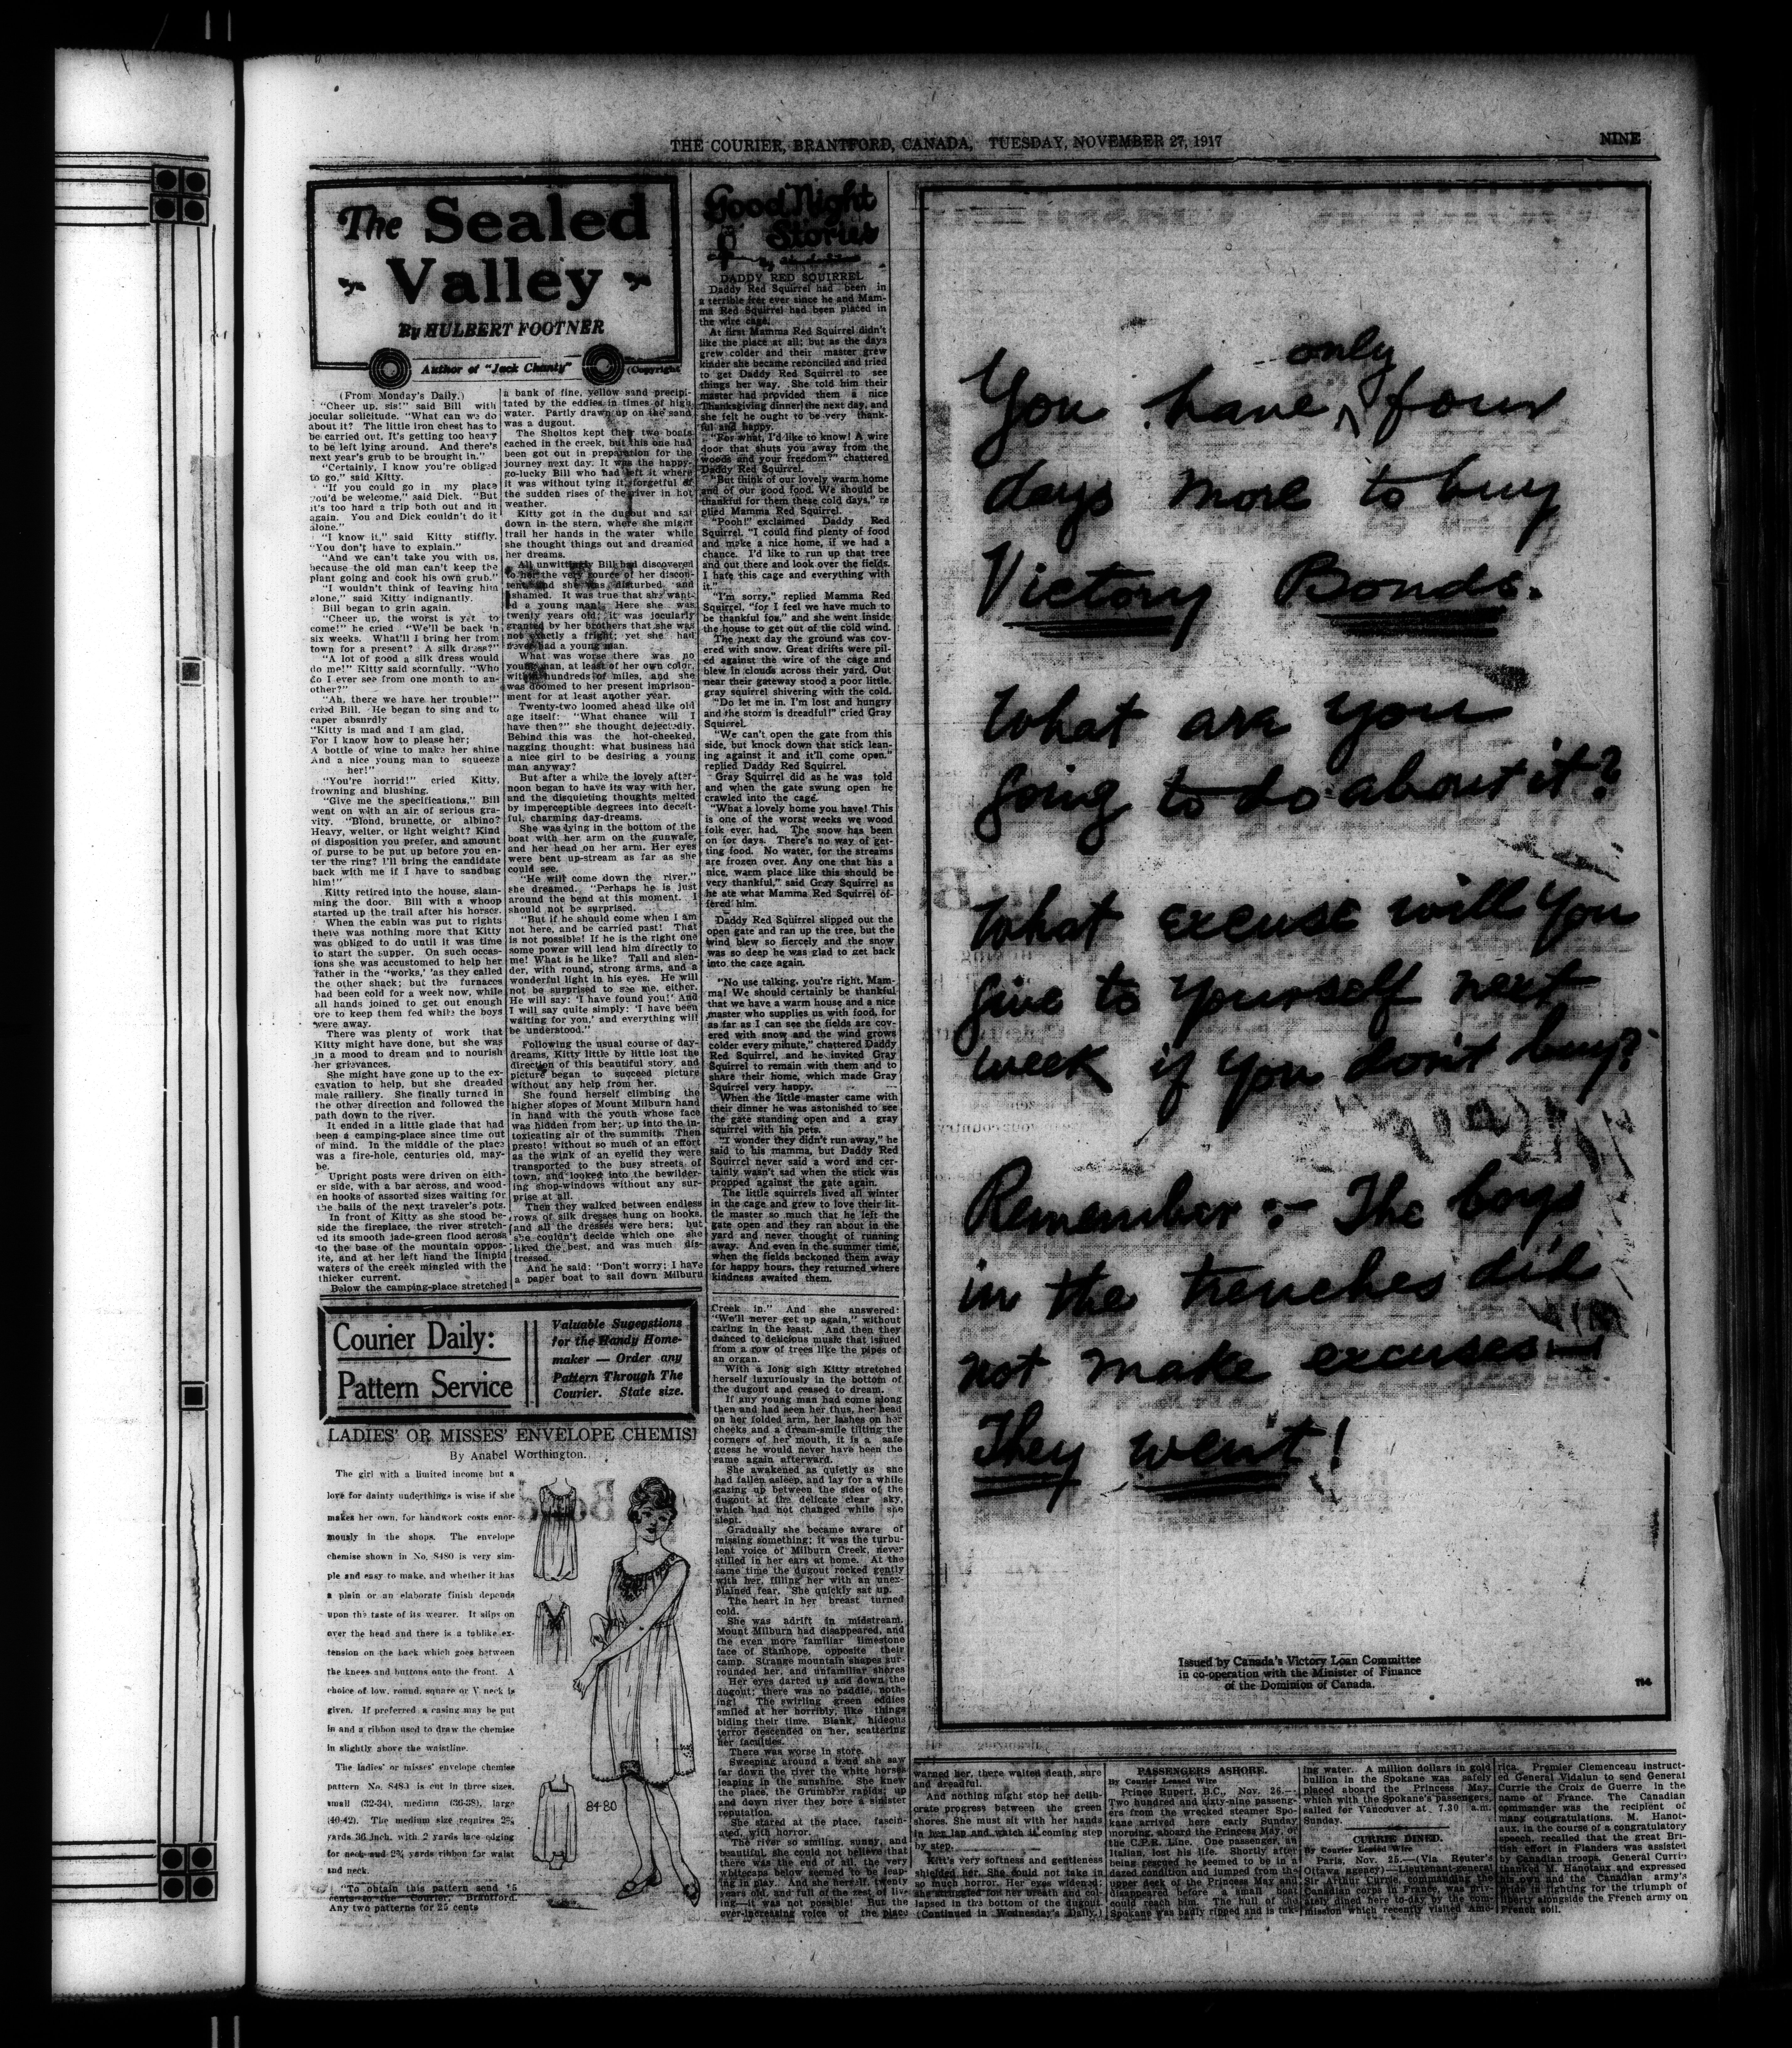 THE COURIER, BRANTFORD, CANADA, TUESDAY, NOVEMBER 27, 1917
NINE
The Sealed
Valley
By HULBERT FOOTNER
Author of "Jack Chanty"
(Copyright
(From Monday's Daily.)
"Cheer up, sis!" said Bill with
jocular solicitude. "What can we do
about it? The little iron chest has to
be carried out. It's getting too heavy
to be left lying around. And there's
next year's grub to be brought in."
"Certainly, I know you're obliged
to go," said Kitty.
"If you could go in my place
you'd be welcome," said Dick. "But
it's too hard a trip both out and in
again. You and Dick couldn't do it
alone."
"I know it," said Kitty stiffly.
"You don't have to explain."
"And we can't take you with us,
because the old man can't keep the
plant going and cook his own grub."
"I wouldn't think of leaving him
alone," said Kitty indignantly.
Bill began to grin again.
"Cheer up, the worst is yet to
come!" he cried "We'll be back 'n
six weeks. What'll I bring her from
town for a present? A silk dress?"
"A lot of good a silk dress would
do me!" Kitty said scornfully. "Who
do I ever see from one month to an-
other?"
"Ah, there we have her trouble!"
cried Bill. He began to sing and to
caper absurdly
"Kitty is mad and I am glad,
For I know how to please her;
A bottle of wine to make her shine
And a nice young man to squeeze
her!"
"You're horrid!" cried Kitty,
frowning and blushing.
"Give me the specifications," Bill
went on with an air of serious gra-
vity. "Blond, brunette, or albino?
Heavy, welter, or light weight? Kind
of disposition you prefer, and amount
of purse to be put up before you en-
ter the ring? I'll bring the candidate
back with me if I have to sandbag
him!"
Kitty retired into the house, slam-
ming the door. Bill with a whoop
started up the trail after his horses.
When the cabin was put to rights
there was nothing more that Kitty
was obliged to do until it was time
to start the supper. On such occas-
ions she was accustomed to help her
father in the "works,' 'as they called
the other shack; but the furnaces
had been cold for a week now, while
all hands joined to get out enough
ore to keep them fed while the boys
were away.
There was plenty of work that
Kitty might have done, but she was
in a mood to dream and to nourish
her grievances.
She might have gone up to the ex-
cavation to help, but she dreaded
male raillery. She finally turned in
the other direction and followed the
path down to the river.
It ended in a little glade that had
been a camping-place since time out
of mind. In the middle of the place
was a fire-hole, centuries old, may-
be.
Upright posts were driven on eith-
er side, with a bar across, and wood-
en hooks of assorted sizes waiting for
the bails of the next traveler's pots.
In front of Kitty as she stood be-
side the fireplace, the river stretch-
ed its smooth jade-green flood across
to the base of the mountain oppos-
ite, and at her left hand the limpid
waters of the creek mingled with the
thicker current.
Below the camping-place stretched
a bank of fine, yellow sand precipi-
tated by the eddies in times of high
water. Partly drawn up on the sand
was a dugout.
The Sholtos kept their two boats
cached in the creek, but this one had
been got out in preparation for the
journey next day. It was the happy-
go-lucky Bill who had left it where
it was without tying it, forgetful of
the sudden rises of the river in hot
weather.
Kitty got in the dugout and sat
down in the stern, where she might
trail her hands in the water while
she thought things out and dreamed
her dreams.
All unwittingly Bill had discovered
to her the very source of her discon-
tent and she was disturbed and
ashamed. It was true that she want-
ed a young man! Here she was
twenty years old; it was jocularly
granted by her brothers that she was
not exactly a fright; yet she had
never had a young man.
What was worse there was no
young man, at least of her own color,
within hundreds of miles, and she
was doomed to her present imprison-
ment for at least another year.
Twenty-two loomed ahead like old
age itself: "What chance will I
have then?" she thought dejectedly.
Behind this was the hot-cheeked,
nagging thought: what business had
a nice girl to be desiring a young
man anyway?
But after a while the lovely after-
noon began to have its way with her,
and the disquieting thoughts melted
by imperceptible degrees into deceit-
ful, charming day-dreams.
She was lying in the bottom of the
boat with her arm on the gunwale,
and her head on her arm. Her eyes
were bent up-stream as far as she
could see.
"He will come down the river,"
she dreamed. "Perhaps he is just
around the bend at this moment. I
should not be surprised.
"But if he should come when I am
not here, and be carried past! That
is not possible! If he is the right one
some power will lead him directly to
me! What is he like? Tall and slen-
der, with round, strong arms, and a
wonderful light in his eyes. He will
not be surprised to see me, either,
He will say: 'I have found you!' And
I will say quite simply: 'I have been
waiting for you,' and everything will
be understood."
Following the usual course of day-
dreams, Kitty little by little lost the
direction of this beautiful story, and
picture began to succeed picture
without any help from her.
She found herself climbing the
higher slopes of Mount Milburn hand
in hand with the youth whose face
was hidden from her; up into the in-
toxicating air of the summits. Then
presto! without so much of an effort
as the wink of an eyelid they were
transported to the busy streets of
town, and looked into the bewilder-
ing shop-windows without any sur-
prise at all.
Then they walked between endless
rows of silk dresses hung on hooks,
and all the dresses were hers; but
she couldn't decide which one she
liked the best, and was much dis-
tressed.
And he said: "Don't worry; I have
a paper boat to sail down Milburn
Good Night
Stories
DADDY RED SQUIRREL
Daddy Red Squirrel had been in
a terrible fret ever since he and Mam-
ma Red Squirrel had been placed in
the wire cage.
At first Mamma Red Squirrel didn't
like the place at all; but as the days
grew colder and their master grew
kinder she became reconciled and tried
to get Daddy Red Squirrel to see
things her way. She told him their
master had provided them a nice
Thanksgiving dinner the next day, and
she felt he ought to be very thank-
ful and happy.
"For what, I'd like to know! A wire
door that shuts you away from the
woods and your freedom?" chattered
Daddy Red Squirrel.
"But think of our lovely warm home
and of our good food. We should be
thankful for them these cold days," re
plied Mamma Red Squirrel.
"Pooh!" exclaimed Daddy Red
Squirrel. "I could find plenty of food
and make a nice home, if we had a
chance. I'd like to run up that tree
and out there and look over the fields.
I hate this cage and everything with
it."
"I'm sorry," replied Mamma Red
Squirrel, "for I feel we have much to
be thankful for," and she went inside
the house to get out of the cold wind.
The next day the ground was cov-
ered with snow. Great drifts were pil-
ed against the wire of the cage and
blew in clouds across their yard. Out
near their gateway stood a poor little,
gray squirrel shivering with the cold.
"Do let me in. I'm lost and hungry
and the storm is dreadful!" cried Gray
Squirrel.
"We can't open the gate from this
side, but knock down that stick lean-
ing against it and it'll come open,"
replied Daddy Red Squirrel.
Gray Squirrel did as he was told
and when the gate swung open he
crawled into the cage.
"What a lovely home you have! This
is one of the worst weeks we wood
folk ever had. The snow has been
on for days. There's no way of get-
ting food. No water, for the streams
are frozen over. Any one that has a
nice, warm place like this should be
very thankful," said Gray Squirrel as
he ate what Mamma Red Squirrel of-
fered him.
Daddy Red Squirrel slipped out the
open gate and ran up the tree, but the
wind blew so fiercely and the snow
was so deep he was glad to get back
into the cage again.
"No use talking, you're right, Mam-
ma! We should certainly be thankful
that we have a warm house and a nice
master who supplies us with food, for
as far as I can see the fields are cov-
ered with snow and the wind grows
colder every minute," chattered Daddy
Red Squirrel, and he invited Gray
Squirrel to remain with them and to
share their home, which made Gray
Squirrel very happy.
When the little master came with
their dinner he was astonished to see
the gate standing open and a gray
squirrel with his pets.
"I wonder they didn't run away," he
said to his mamma, but Daddy Red
Squirrel never said a word and cer-
tainly wasn't sad when the stick was
propped against the gate again.
The little squirrels lived all winter
in the cage and grew to love their lit-
tle master so much that he left the
gate open and they ran about in the
yard and never thought of running
away. And even in the summer time,
when the fields beckoned them away
for happy hours, they returned where
kindness awaited them.
Courier Daily:
Pattern Service
Valuable Sugegstions
for the Handy Home-
maker — Order any
Pattern Through The
Courier. State size.
LADIES' OR MISSES' ENVELOPE CHEMIS
By Anabel Worthington.
The girl with a limited income but a
love for dainty underthings is wise if she
makes her own, for handwork costs enor-
mously in the shops. The envelope
chemise shown in No. 8480 is very sim-
ple and easy to make, and whether it has
a plain or an elaborate finish depends
upon the taste of its wearer. It slips on
over the head and there is a tablike ex-
tension on the back which goes between
the knees and buttons onto the front. A
choice of low, round, square or V neck is
given. If preferred a casing may be put
in and a ribbon used to draw the chemise
in slightly above the waistline.
The ladies' or misses' envelope chemise
pattern No. 8480 is cut in three sizes,
small (32-34), medium (36-38), large
(40-42). The medium size requires 2⅝
yards 36 inch, with 2 yards lace edging
for neck and 2¾ yards ribbon for waist
and neck.
"To obtain this pattern send 15
cents to the Courier, Brantford.
Any two patterns for 25 cents
8480
Creek in." And she answered:
"We'll never get up again," without
caring in the least. And then they
danced to delicious music that issued
from a row of trees like the pipes of
an organ.
With a long sigh Kitty stretched
herself luxuriously in the bottom of
the dugout and ceased to dream.
If any young man had come along
then and had seen her thus, her head
on her folded arm, her lashes on her
cheeks and a dream-smile tilting the
corners of her mouth, it is a safe
guess he would never have been the
same again afterward.
She awakened as quietly as she
had fallen asleep, and lay for a while
gazing up between the sides of the
dugout at the delicate clear sky,
which had not changed while she
slept.
Gradually she became aware of
missing something; it was the turbu-
lent voice of Milburn Creek, never
stilled in her ears at home. At the
same time the dugout rocked gently
with her, filling her with an unex-
plained fear. She quickly sat up.
The heart in her breast turned
cold.
She was adrift in midstream.
Mount Milburn had disappeared, and
the even more familiar limestone
face of Stanhope, opposite their
camp. Strange mountain shapes sur-
rounded her, and unfamiliar shores
Her eyes darted up and down the
dugout; there was no paddle, noth-
ing! The swirling green eddies
smiled at her horribly, like things
biding their time. Blank, hideous
terror descended on her, scattering
her faculties.
There was worse in store.
Sweeping around a bend she saw
far down the river the white horses
leaping in the sunshine. She knew
the place, the Grumbler rapids; up
and down river they bore a sinister
reputation.
She stared at the place, fascin-
ated, with horror.
The river so smiling, sunny, and
beautiful, she could not believe that
there was the end of all, the very
whitecaps below seemed to be leap-
ing in play. And she herself, twenty
years old, and full of the zest of liv-
ing—it was not possible! But the
ever-increasing voice of the place
warned her, there waited death, sure
and dreadful.
And nothing might stop her delib-
erate progress between the green
shores. She must sit with her hands
in her lap and watch it coming step
by step.
Kitt's very softness and gentleness
shielded her. She could not take in
so much horror. Her eyes widened;
she struggled for her breath and col-
lapsed in the bottom of the dugout.
(Continued in Wednesday's Daily.)
You have only four
days more to buy
Victory Bonds.
What are you
going to do about it?
What excuse will you
give to yourself next
week if you don't buy?
Remember:— The boys
in the trenches did
not make excuses—
They went!
Issued by Canada's Victory Loan Committee
in co-operation with the Minister of Finance
of the Dominion of Canada.
PASSENGERS ASHORE.
By Courier Leased Wire
Prince Rupert, B.C., Nov. 26.—
Two hundred and sixty-nine passeng-
ers from the wrecked steamer Spo-
kane arrived here early Sunday
morning, aboard the Princess May, of
the C.P.R. Line. One passenger, an
Italian, lost his life. Shortly after
being rescued he seemed to be in a
dazed condition and jumped from the
upper deck of the Princess May and
disappeared before a small boat
could reach him. The hull of the
Spokane was badly ripped and is tak-
ing water. A million dollars in gold
bullion in the Spokane was safely
placed aboard the Princess May,
which with the Spokane's passengers,
sailed for Vancouver at 7.30 a.m.
Sunday.
CURRIE DINED.
By Courier Leased Wire
Paris, Nov. 25.—(Via Reuter's
Ottawa agency)—Lieutenant-general
Sir Arthur Currie, commanding the
Canadian corps in France, was priv-
ately dined here to-day by the com-
mission which recently visited Ame-
rica. Premier Clemenceau instruct-
ed General Vidalun to send General
Currie the Croix de Guerre in the
name of France. The Canadian
commander was the recipient of
many congratulations. M. Hanot-
aux, in the course of a congratulatory
speech, recalled that the great Bri-
tish effort in Flanders was assisted
by Canadian troops. General Currie
thanked M. Hanotaux and expressed
his own and the Canadian army's
pride in fighting for the triumph of
liberty alongside the French army on
French soil.